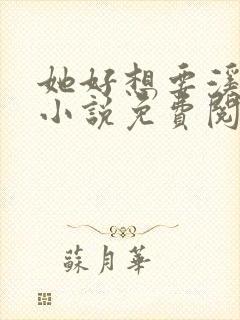 她好想要
小说免費閱
蘇月華